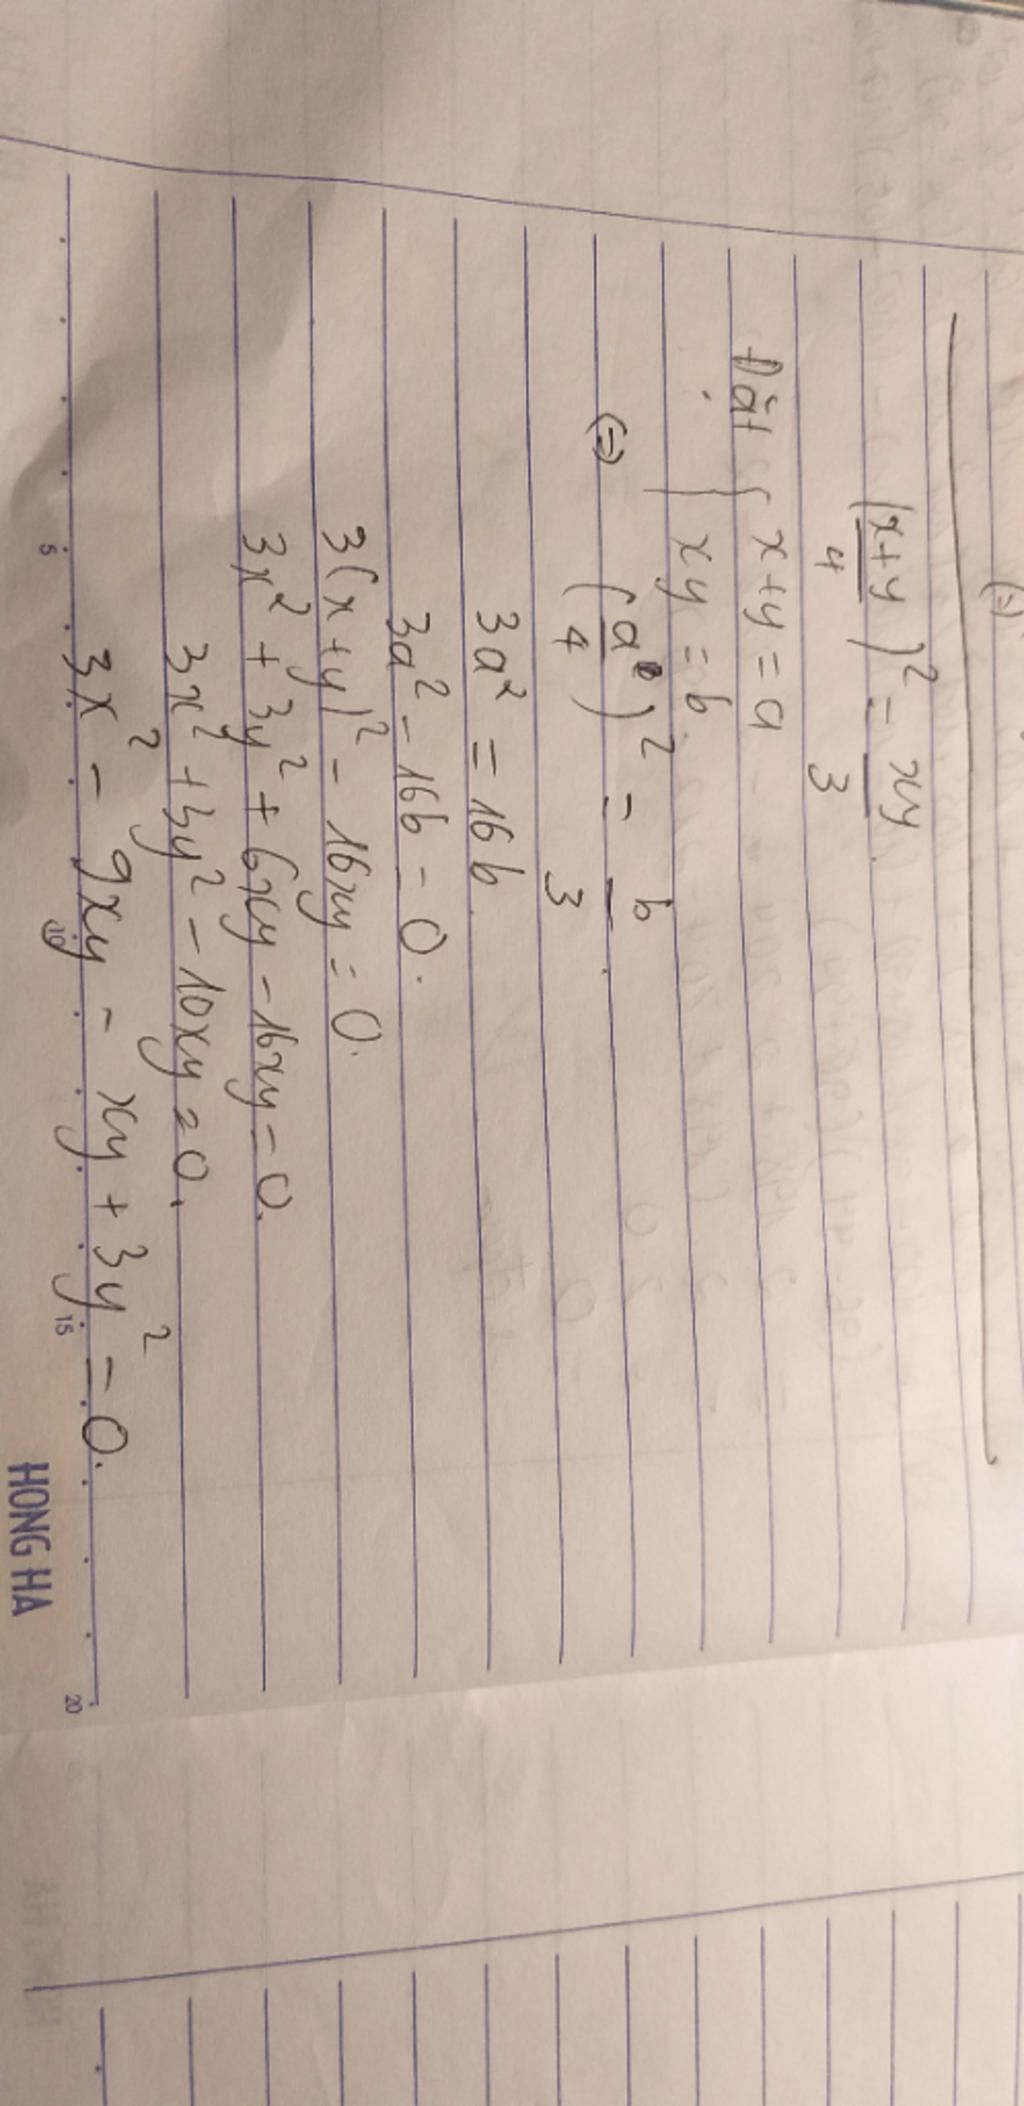 (=)
(x+y/4)² = xy/3
Đặt { x+y = a
xy = b
(=) (a/4)² = b/3
3a² = 16b
3a² - 16b = 0.
3(x+y)² - 16xy = 0.
3x² + 3y² + 6xy - 16xy = 0.
3x² + 3y² - 10xy = 0.
3x² - 9xy - xy + 3y² = 0.
5 10 15 20
HONG HA